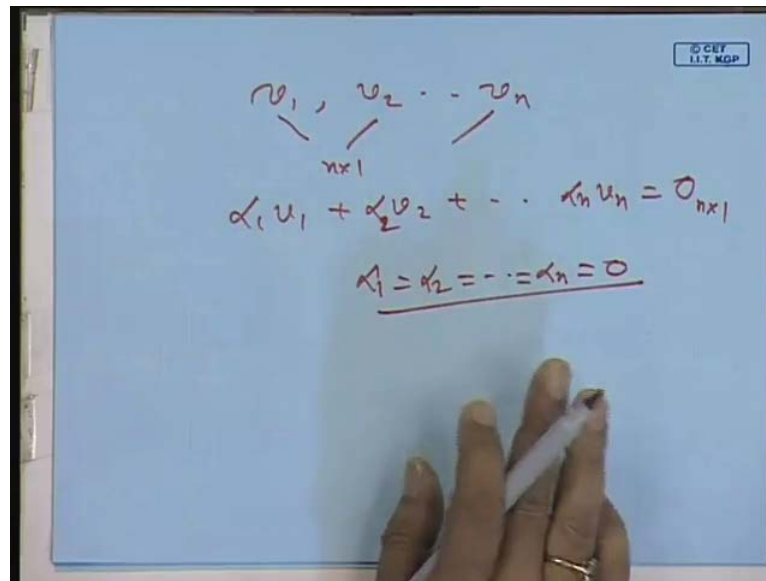 © CET
I.I.T. KGP
v₁, v₂ ·· vₙ
n×1
α₁ v₁ + α₂ v₂ + ·· αₙ vₙ = 0ₙₓ₁
α₁ = α₂ = -·· = αₙ = 0